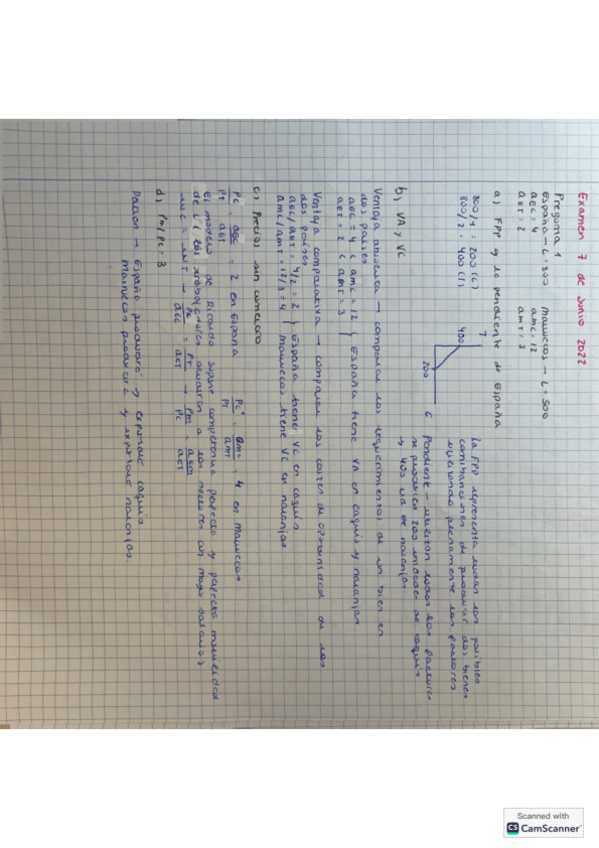 Examen 7 de Junio 2022
Pregunta 1
España - L = 800 Marruecos - L = 500
aLC = 4 amc = 12
aLT = 2 amT = 3
a) FPP y la pendiente de España
800/4 = 200 (C)
800/2 = 400 (T)
T
400
200
C
La FPP representa todas las posibles
combinaciones de producir dos bienes
utilizando plenamente los factores
Pendiente - utilizan todos los factores
se producen 200 unidades de caquis
y 400 ud de naranjas
b) VA y VC
Ventaja absoluta → comparar los requerimientos de un bien en
dos países
aLC = 4 < amc = 12 } España tiene VA en caquis y naranjas
aLT = 2 < amT = 3
Ventaja comparativa → comparar los costes de oportunidad de los
dos países
aLC/aLT = 4/2 = 2 } España tiene VC en caquis
amc/amT = 12/3 = 4 Marruecos tiene VC en naranjas
c) Precios sin comercio
Pc/PT = aLC/aLT = 2 en España Pc*/PT = amc/amT = 4 en Marruecos
El modelo de Ricardo supone competencia perfecta y perfecta movilidad
de L
d) Pm/Pc = 3
Patrón → España producirá y exportará caquis
Marruecos producirá y exportará naranjas.
Scanned with
CS CamScanner